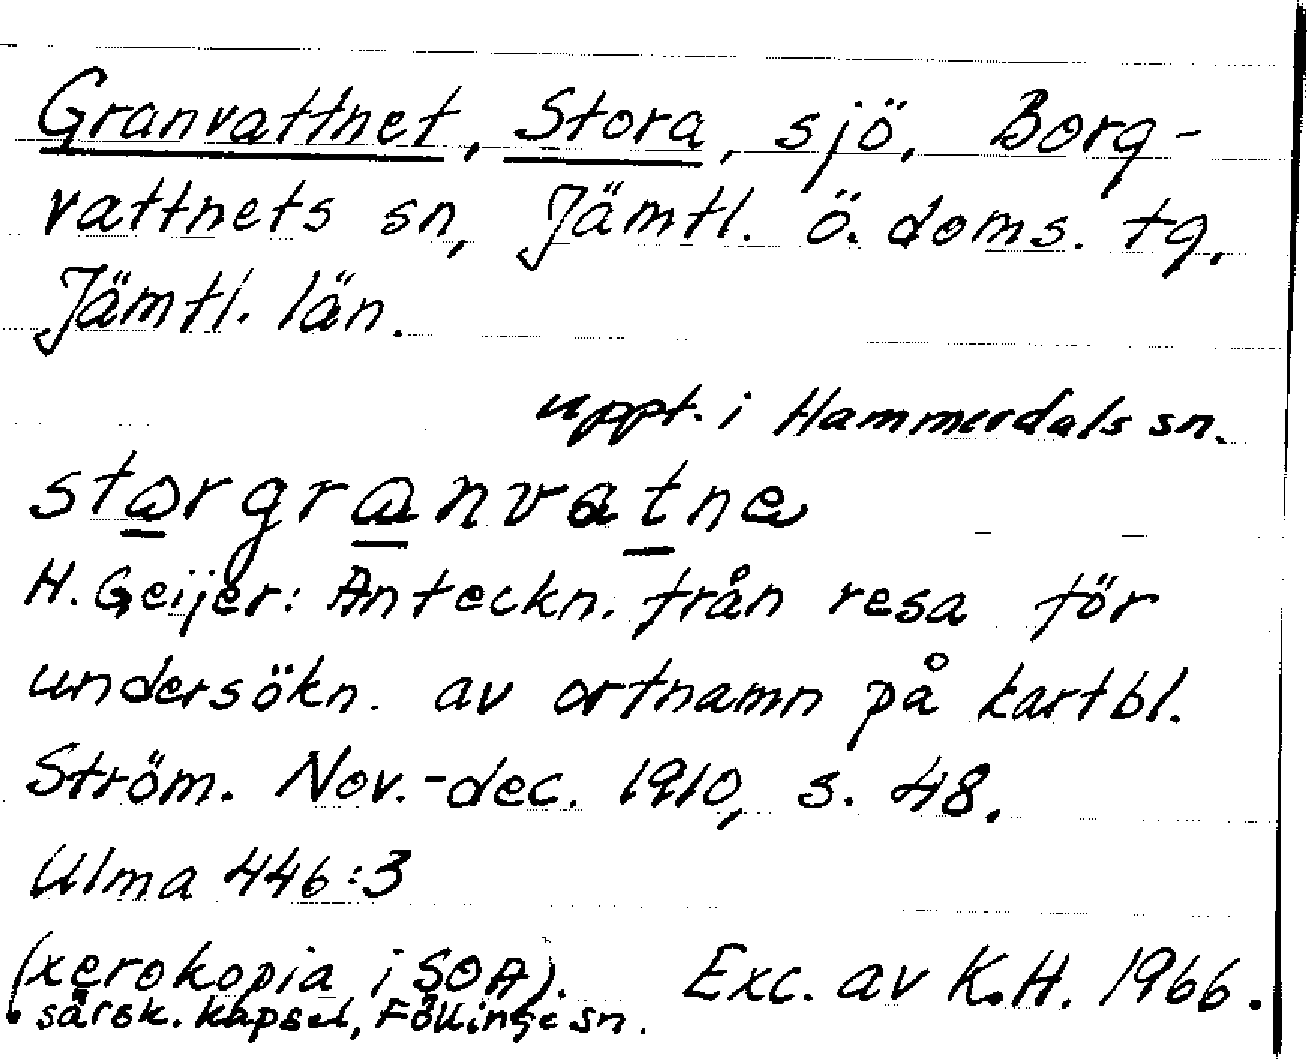 Granvattnet, Stora, sjö, Borg-
vattnets sn, Jämtl. ö. doms. tg,
Jämtl. län.
uppt. i Hammerdals sn.
storgranvatne
H. Geijer: Anteckn. från resa för
undersökn. av ortnamn på kartbl.
Ström. Nov.-dec. 1910, s. 48.
Ulma 446:3
(xerokopia i SOA). Exc. av K.H. 1966.
särsk. kapsel, Föllinge sn.